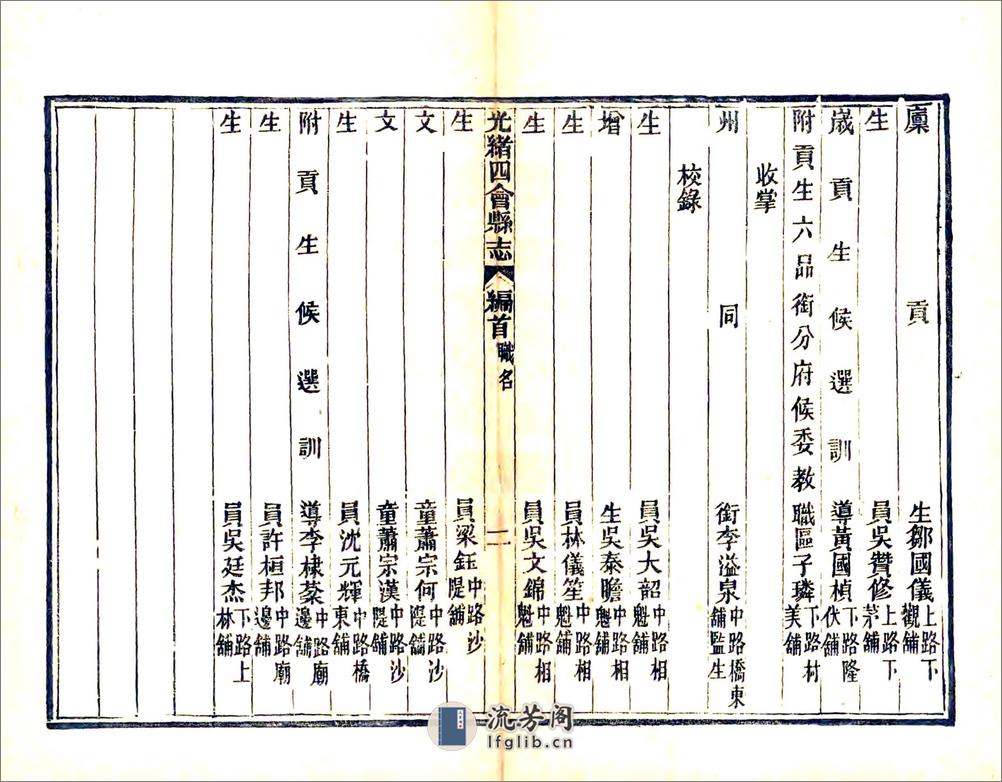 廩貢生鄒國儀上路下觀舖
生員吳贊修上路下茅舖
歲貢生候選訓導黃國楨下路隆伏舖
附貢生六品銜分府候委教職區子璘下路村美舖
收掌
州同銜李溢泉中路橋東舖監生
校錄
生員吳大韶中路相魁舖
增生吳泰瞻中路相魁舖
生員林儀笙中路相魁舖
生員吳文錦中路相魁舖
光緒四會縣志 編首 職名 二
生員梁鈺中路沙隄舖
文童蕭宗何中路沙隄舖
文童蕭宗漢中路沙隄舖
生員沈元輝中路橋東舖
附貢生候選訓導李棣棻中路廟邊舖
生員許桓邦中路廟邊舖
生員吳廷杰下路上林舖
流芳阁
lfglib.cn